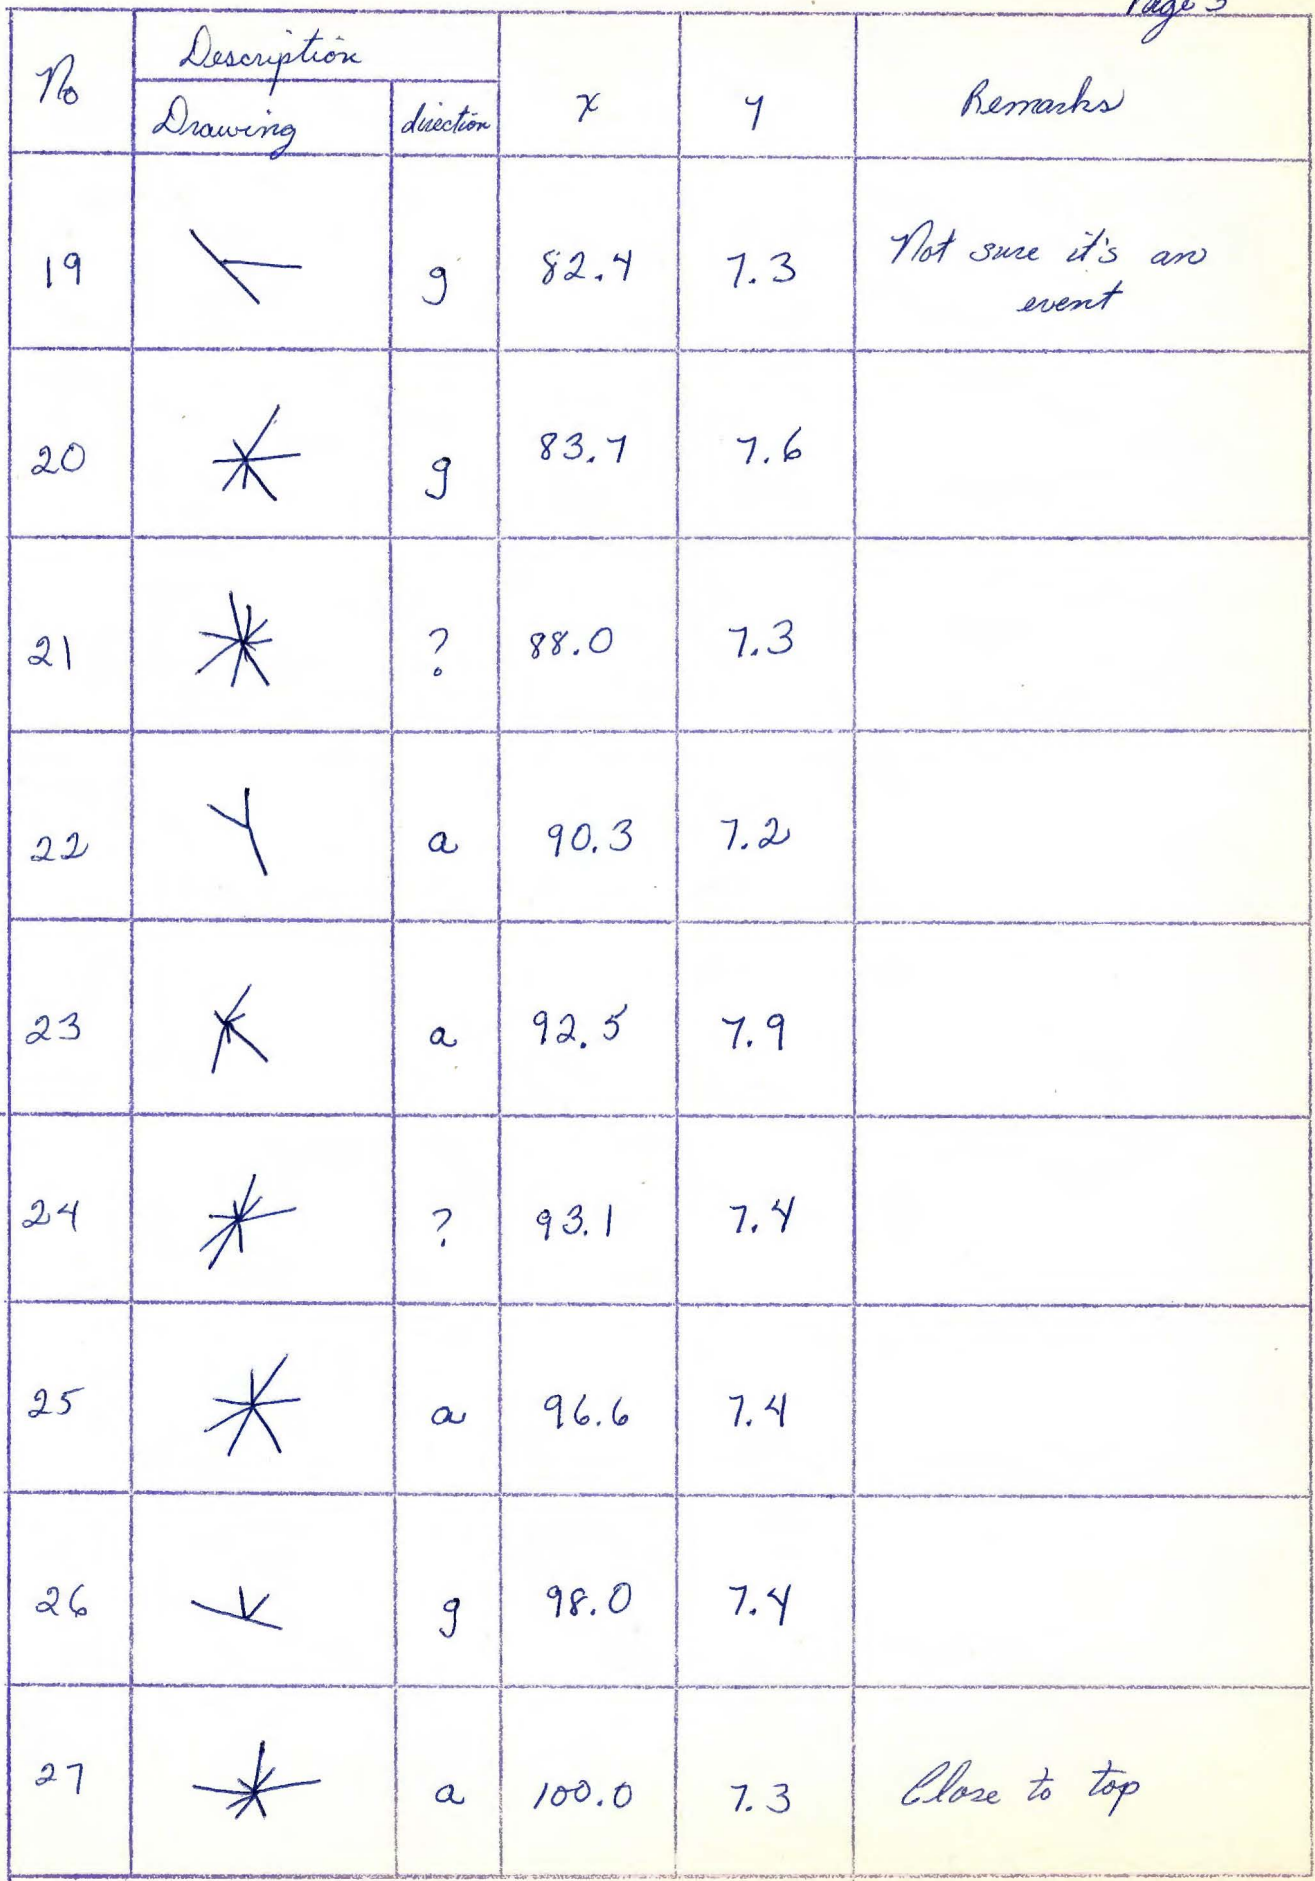 Page 3
No Description x y Remarks
Drawing direction
19 g 82.4 7.3 Not sure it's an
event
20 g 83.7 7.6
21 ? 88.0 7.3
22 a 90.3 7.2
23 a 92.5 7.9
24 ? 93.1 7.4
25 a 96.6 7.4
26 g 98.0 7.4
27 a 100.0 7.3 Close to top